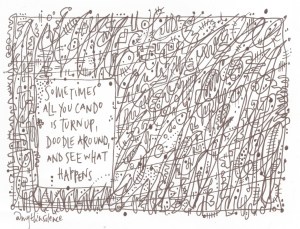 SOMETIMES
ALL YOU CAN DO
IS TURN UP,
DOODLE AROUND,
AND SEE WHAT
HAPPENS